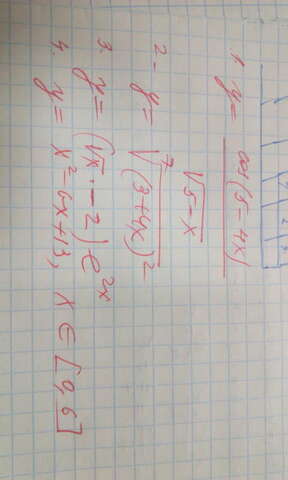 1. y = cos(5-4x) / √5-x
2. y = ⁷√(3+4x)²
3. y = (√x - 2) e²ˣ
4. y = x² - 6x + 13, x ∈ [0, 6]